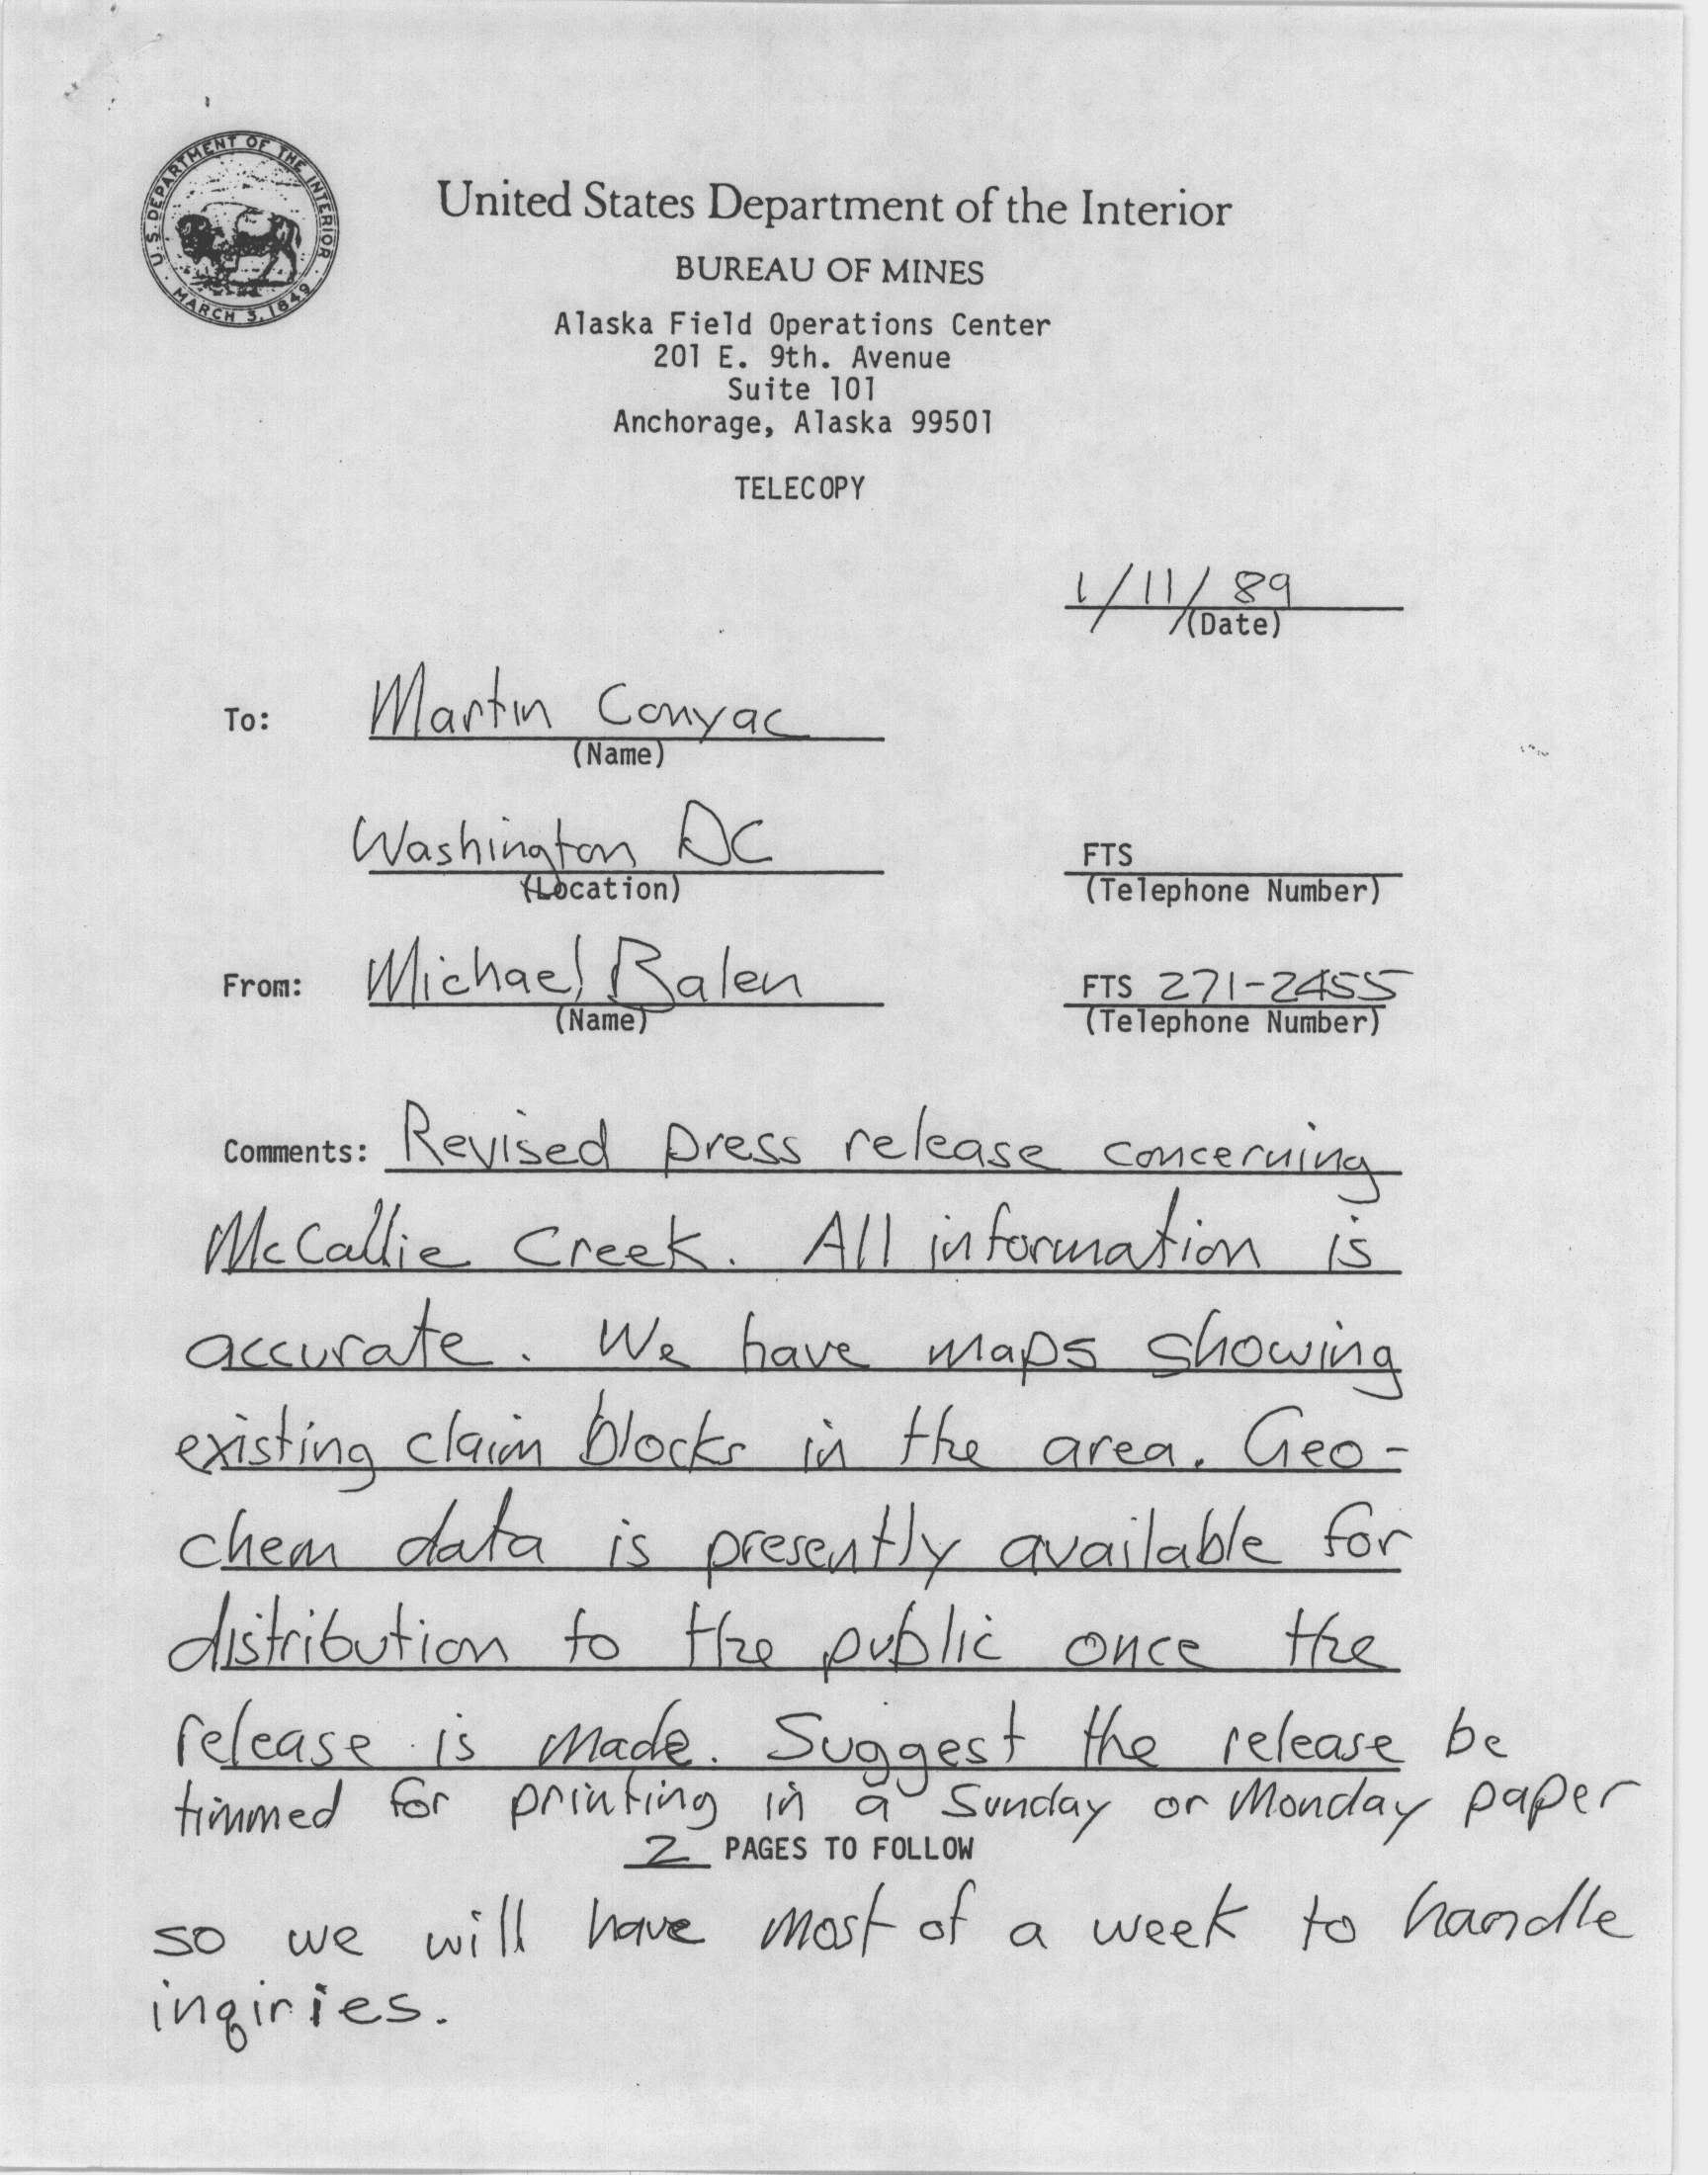 U.S. DEPARTMENT OF THE INTERIOR
MARCH 3, 1849
United States Department of the Interior
BUREAU OF MINES
Alaska Field Operations Center
201 E. 9th. Avenue
Suite 101
Anchorage, Alaska 99501
TELECOPY
1/11/89
(Date)
To: Martin Conyac
(Name)
Washington DC FTS
(Location) (Telephone Number)
From: Michael Balen FTS 271-2455
(Name) (Telephone Number)
Comments: Revised press release concerning
McCallie Creek. All information is
accurate. We have maps showing
existing claim blocks in the area. Geo-
chem data is presently available for
distribution to the public once the
release is made. Suggest the release be
timmed for printing in a Sunday or Monday paper
2 PAGES TO FOLLOW
so we will have most of a week to handle
inqiries.